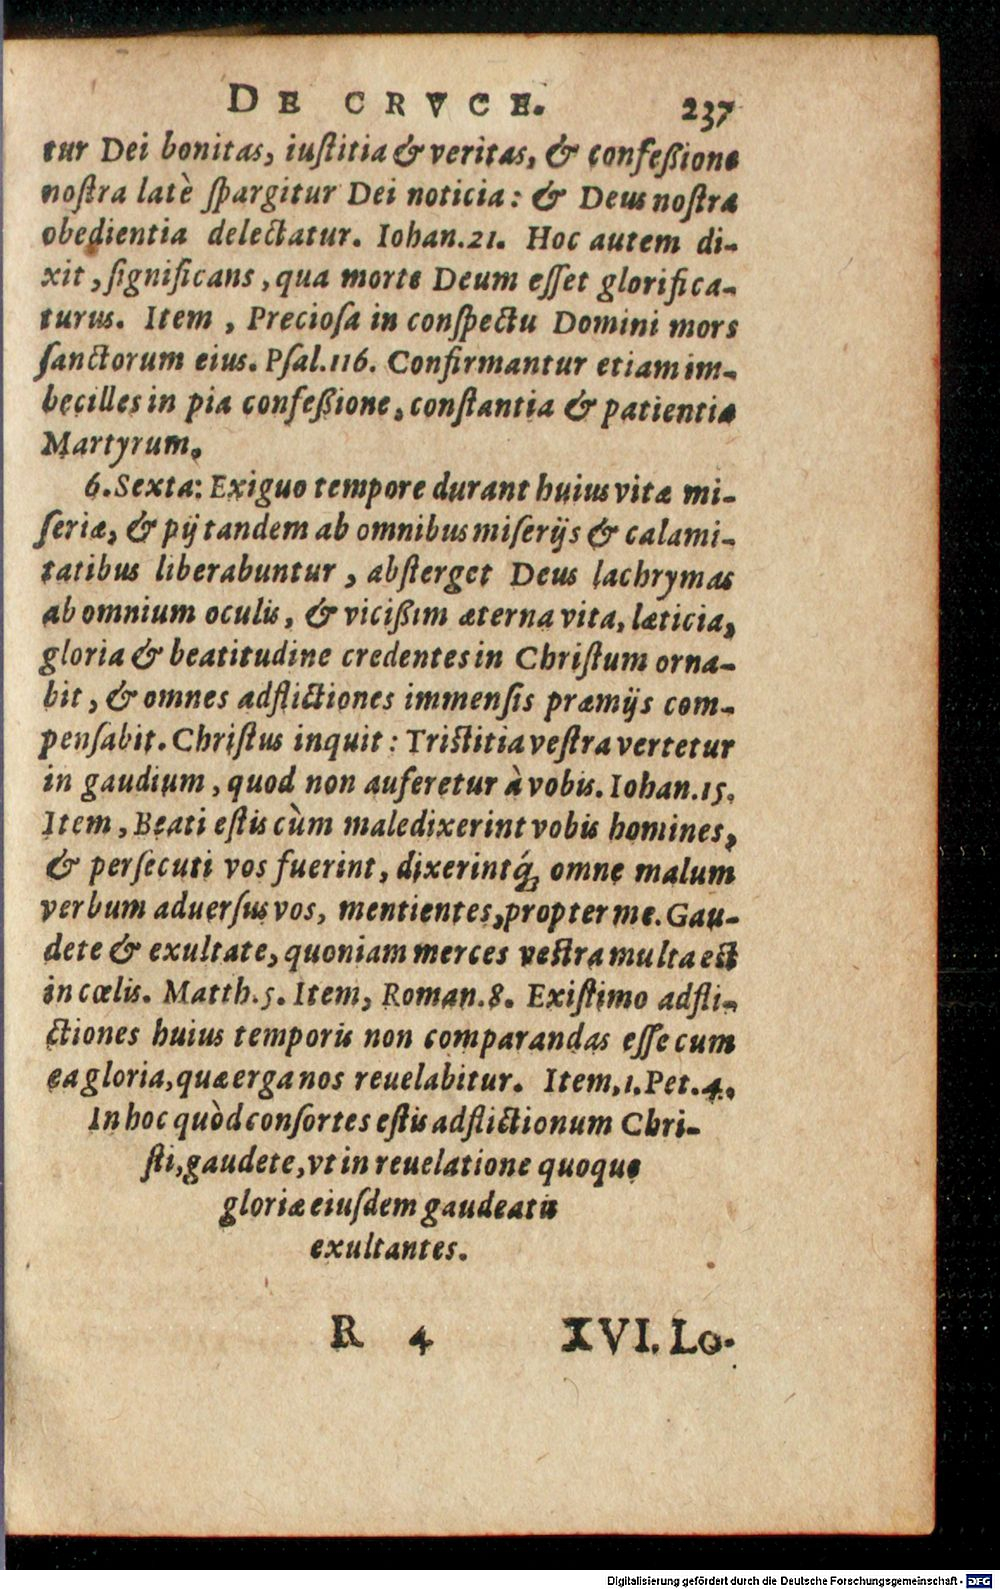 DE CRVCE. 237
tur Dei bonitas, iuſtitia & veritas, & confeßione
noſtra latè ſpargitur Dei noticia: & Deus noſtra
obedientia delectatur. Iohan.21. Hoc autem di-
xit, ſignificans, qua morte Deum eſſet glorifica-
turus. Item, Precioſa in conſpectu Domini mors
ſanctorum eius. Pſal.116. Confirmantur etiam im-
becilles in pia confeßione, conſtantia & patientia
Martyrum.
6. Sexta: Exiguo tempore durant huius vitæ mi-
ſeriæ, & pij tandem ab omnibus miſerijs & calami-
tatibus liberabuntur, abſterget Deus lachrymas
ab omnium oculis, & vicißim æterna vita, læticia,
gloria & beatitudine credentes in Chriſtum orna-
bit, & omnes adflictiones immenſis præmijs com-
penſabit. Chriſtus inquit: Triſtitia veſtra vertetur
in gaudium, quod non auferetur à vobis. Iohan.15.
Item, Beati eſtis cùm maledixerint vobis homines,
& perſecuti vos fuerint, dixerintq́; omne malum
verbum aduerſus vos, mentientes, propter me. Gau-
dete & exultate, quoniam merces veſtra multa eſt
in cœlis. Matth.5. Item, Roman.8. Exiſtimo adfli-
ctiones huius temporis non comparandas eſſe cum
ea gloria, quæ erga nos reuelabitur. Item, 1. Pet.4.
In hoc quòd conſortes eſtis adflictionum Chri-
ſti, gaudete, vt in reuelatione quoque
gloriæ eiuſdem gaudeatis
exultantes.
R 4 XVI. Lo-
Digitalisierung gefördert durch die Deutsche Forschungsgemeinschaft - DFG